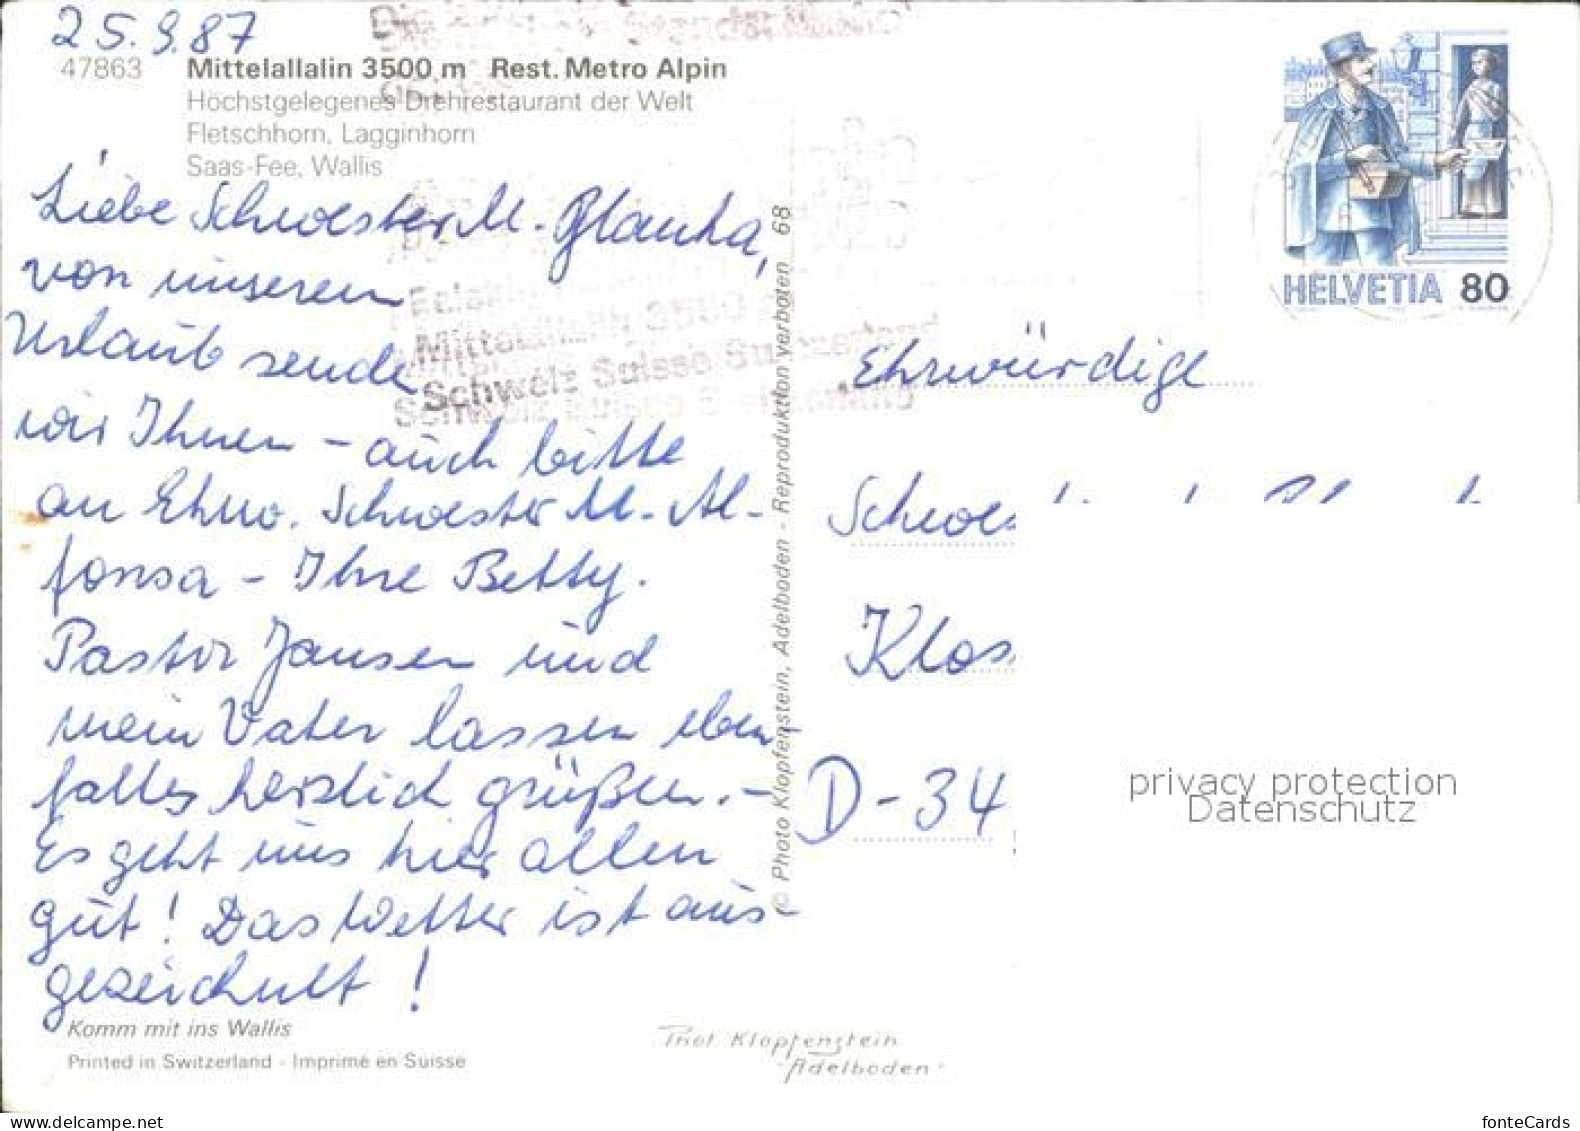 25.9.87
47863 Mittelallalin 3500 m Rest. Metro Alpin
Höchstgelegenes Drehrestaurant der Welt
Fletschhorn, Lagginhorn
Saas-Fee, Wallis
Liebe Schwester M.
von unseren
Urlaub sende
wir Ihnen – auch bitte
an Ehrw. Schwester M. Al-
fonsa – Ihre Betty.
Pastor Jansen und
mein Vater lassen eben-
falls herzlich grüßen. –
Es geht uns hier allen
gut! Das Wetter ist aus-
gezeichnet!
Komm mit ins Wallis
Printed in Switzerland - Imprimé en Suisse
Phot. Klopfenstein
Adelboden
© Photo Klopfenstein, Adelboden - Reproduktion verboten 68
Mittelallalin 3500
Schweiz Suisse Switzerland
HELVETIA 80
Ehrwürdige
Schwes
Klos
D-34
privacy protection
Datenschutz
fonteCards